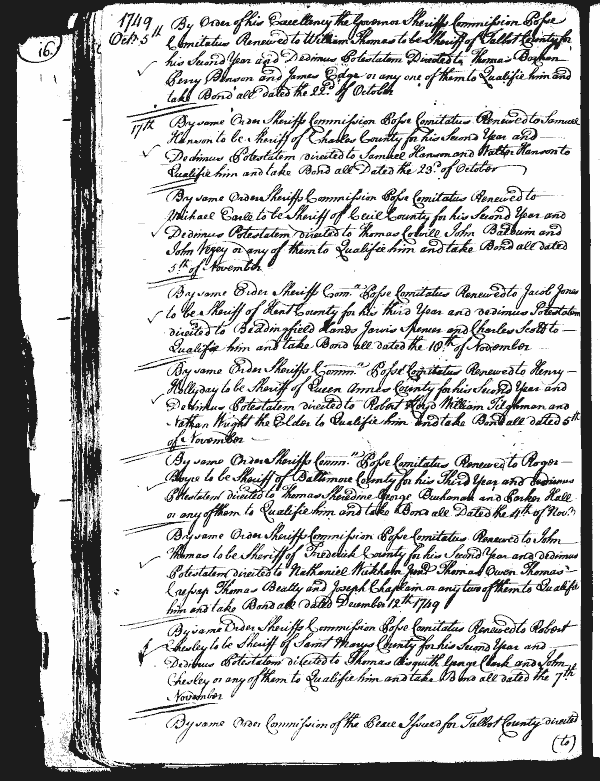 16.
1749
Octr. 5th
By Order of his Excellency the Governor Sheriffs Commission Posse
Comitatus Renewed to William Thomas to be Sheriff of Talbot County for
his Second Year and Dedimus Potestatem Directed to Thomas
Perry Benson and James Edge or any one of them to Qualifie him and
take Bond all dated the 22d. of October
17th
By same order Sheriffs Commission Posse Comitatus Renewed to Samuel
Hanson to be Sheriff of Charles County for his Second Year and
Dedimus Potestatem directed to Samuel Hanson and Walter Hanson to
Qualifie him and take Bond all Dated the 23d. of October
By same Order Sheriffs Commission Posse Comitatus Renewed to
Michael Earle to be Sheriff of Cecil County for his Second Year and
Dedimus Potestatem directed to Thomas Colvill John Baldwin and
John Veazey or any of them to Qualifie him and take Bond all dated
5th of November
By same Order Sheriffs Comn. Posse Comitatus Renewed to Jacob Jones
to be Sheriff of Kent County for his third Year and dedimus Potestatem
directed to Bedingfield Hands Jarvis Spencer and Charles Scott to
Qualifie him and take Bond all dated the 18th of November
By same Order Sheriffs Commn. Posse Comitatus Renewed to Henry
Hollyday to be Sheriff of Queen Annes County for his Second Year and
Dedimus Potestatem directed to Robert Lloyd William Tilghman and
Nathan Wright the Elder to Qualifie him and take Bond all dated 5th
of November
By same Order Sheriffs Commn. Posse Comitatus Renewed to Roger
Boyce to be Sheriff of Baltimore County for his Third Year and Dedimus
Potestatem directed to Thomas Sheredine George Buchanan and Parker Hall
or any of them to Qualifie him and take Bond all Dated the 4th of Novr.
By same Order Sheriffs Commission Posse Comitatus Renewed to John
Thomas to be Sheriff of Frederick County for his Second Year and dedimus
Potestatem directed to Nathaniel Wickham Junr. Thomas Owen Thomas
Cressap Thomas Beatty and Joseph Chaplain or any two of them to Qualifie
him and take Bond all dated December 12th 1749
By same Order Sheriffs Commission Posse Comitatus Renewed to Robert
Chesley to be Sheriff of Saint Marys County for his Second Year and
Dedimus Potestatem directed to Thomas Aisquith George Clark and John
Chesley or any of them to Qualifie him and take Bond all dated the 7th
November
By same Order Commission of the Peace Issued for Talbot County directed
(to)